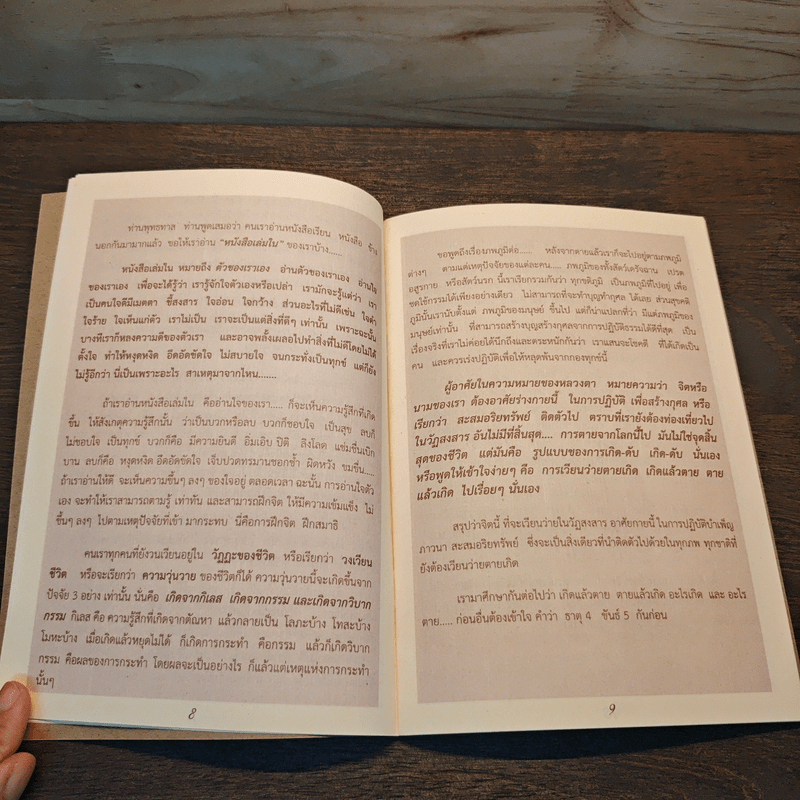 ท่านพุทธทาส ท่านพูดเสมอว่า คนเราอ่านหนังสือเรียน หนังสือ ข้าง
นอกกันมามากแล้ว ขอให้เราอ่าน “หนังสือเล่มใน” ของเราบ้าง.....
หนังสือเล่มใน หมายถึง ตัวของเราเอง อ่านตัวของเราเอง อ่านใจ
ของเราเอง เพื่อจะได้รู้ว่า เรารู้จักใจตัวเองหรือเปล่า เรามักจะรู้แต่ว่า เรา
เป็นคนใจดีมีเมตตา ขี้สงสาร ใจอ่อน ใจกว้าง ส่วนอะไรที่ไม่ดีเช่น ใจดำ
ใจร้าย ใจเห็นแก่ตัว เราไม่เป็น เราจะเป็นแต่สิ่งที่ดีๆ เท่านั้น เพราะฉะนั้น
บางทีเราก็หลงความดีของตัวเรา และอาจพลั้งเผลอไปทำสิ่งที่ไม่ดีโดยไม่ได้
ตั้งใจ ทำให้หงุดหงิด อึดอัดขัดใจ ไม่สบายใจ จนกระทั่งเป็นทุกข์ แต่ก็ยัง
ไม่รู้อีกว่า นี่เป็นเพราะอะไร สาเหตุมาจากไหน.......
ถ้าเราอ่านหนังสือเล่มใน คืออ่านใจของเรา..... ก็จะเห็นความรู้สึกที่เกิด
ขึ้น ให้สังเกตุความรู้สึกนั้น ว่าเป็นบวกหรือลบ บวกก็ชอบใจ เป็นสุข ลบก็
ไม่ชอบใจ เป็นทุกข์ บวกก็คือ มีความยินดี อิ่มเอิบ ปิติ ลิงโลด แช่มชื่นเบิก
บาน ลบก็คือ หงุดหงิด อึดอัดขัดใจ เจ็บปวดทรมานชอกช้ำ ผิดหวัง ขมขื่น.....
ถ้าเราอ่านให้ดี จะเห็นความขึ้นๆ ลงๆ ของใจอยู่ ตลอดเวลา ฉะนั้น การอ่านตัว
เอง จะทำให้เราสามารถตามรู้ เท่าทัน และสามารถฝึกจิต ให้มีความเข้มแข็ง ไม่
ขึ้นๆ ลงๆ ไปตามเหตุปัจจัยที่เข้า มากระทบ นี่คือการฝึกจิต ฝึกสมาธิ
คนเราทุกคนที่ยังวนเวียนอยู่ใน วัฏฏะของชีวิต หรือเรียกว่า วงเวียน
ชีวิต หรือจะเรียกว่า ความวุ่นวาย ของชีวิตก็ได้ ความวุ่นวายนี้จะเกิดขึ้นจาก
ปัจจัย 3 อย่าง เท่านั้น นั่นคือ เกิดจากกิเลส เกิดจากกรรม และเกิดจากวิบาก
กรรม กิเลส คือ ความรู้สึกที่เกิดจากตัณหา แล้วกลายเป็น โลภะบ้าง โทสะบ้าง
โมหะบ้าง เมื่อเกิดแล้วหยุดไม่ได้ ก็เกิดการกระทำ คือกรรม แล้วก็เกิดวิบาก
กรรม คือผลของการกระทำ โดยผลจะเป็นอย่างไร ก็แล้วแต่เหตุแห่งการกระทำ
นั้นๆ
8
ขอพูดถึงเรื่องภพภูมิต่อ...... หลังจากตายแล้วเราก็จะไปอยู่ตามภพภูมิ
ต่างๆ ตามแต่เหตุปัจจัยของแต่ละคน..... ภพภูมิของทั้งสัตว์เดรัจฉาน เปรต
อสูรกาย หรือสัตว์นรก นี้เราเรียกรวมกันว่า ทุกขติภูมิ เป็นภพภูมิที่ไปอยู่ เพื่อ
ชดใช้กรรมได้เพียงอย่างเดียว ไม่สามารถที่จะทำบุญทำกุศล ได้เลย ส่วนสุขคติ
ภูมินั้นเรานับตั้งแต่ ภพภูมิของมนุษย์ ขึ้นไป แต่ก็น่าแปลกที่ว่า มีแต่ภพภูมิของ
มนุษย์เท่านั้น ที่สามารถสร้างบุญสร้างกุศลจากการปฏิบัติธรรมได้ดีที่สุด เป็น
เรื่องจริงที่เราไม่ค่อยได้นึกถึงและตระหนักกันว่า เราแสนจะโชคดี ที่ได้เกิดเป็น
คน และควรเร่งปฏิบัติเพื่อให้หลุดพ้นจากกองทุกข์นี้
ผู้อาศัยในความหมายของหลวงตา หมายความว่า จิตหรือ
นามของเรา ต้องอาศัยร่างกายนี้ ในการปฏิบัติ เพื่อสร้างกุศล หรือ
เรียกว่า สะสมอริยทรัพย์ ติดตัวไป ตราบที่เรายังต้องท่องเที่ยวไป
ในวัฏสงสาร อันไม่มีที่สิ้นสุด.... การตายจากโลกนี้ไป มันไม่ใช่จุดสิ้น
สุดของชีวิต แต่มันคือ รูปแบบของการเกิด-ดับ เกิด-ดับ นั่นเอง
หรือพูดให้เข้าใจง่ายๆ คือ การเวียนว่ายตายเกิด เกิดแล้วตาย ตาย
แล้วเกิด ไปเรื่อยๆ นั่นเอง
สรุปว่าจิตนี้ ที่จะเวียนว่ายในวัฏสงสาร อาศัยกายนี้ ในการปฏิบัติบำเพ็ญ
ภาวนา สะสมอริยทรัพย์ ซึ่งจะเป็นสิ่งเดียวที่นำติดตัวไปด้วยในทุกภพ ทุกชาติที่
ยังต้องเวียนว่ายตายเกิด
เรามาศึกษากันต่อไปว่า เกิดแล้วตาย ตายแล้วเกิด อะไรเกิด และ อะไร
ตาย..... ก่อนอื่นต้องเข้าใจ คำว่า ธาตุ 4 ขันธ์ 5 กันก่อน
9